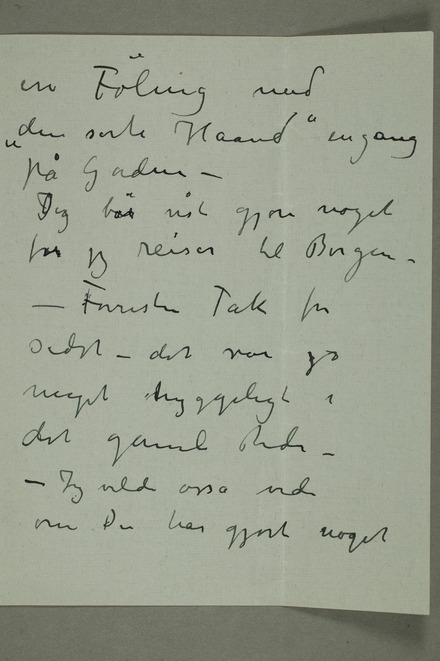 en Föling med
„den sorte Haand" engang
på Gaden –
Jeg bör vist gjöre noget
før jeg reiser til Bergen –
– Forresten Tak for
sidst – det var jo
meget hyggeligt i
det gamle Rede –
– Jeg vilde ossa vide
om Du har gjort noget